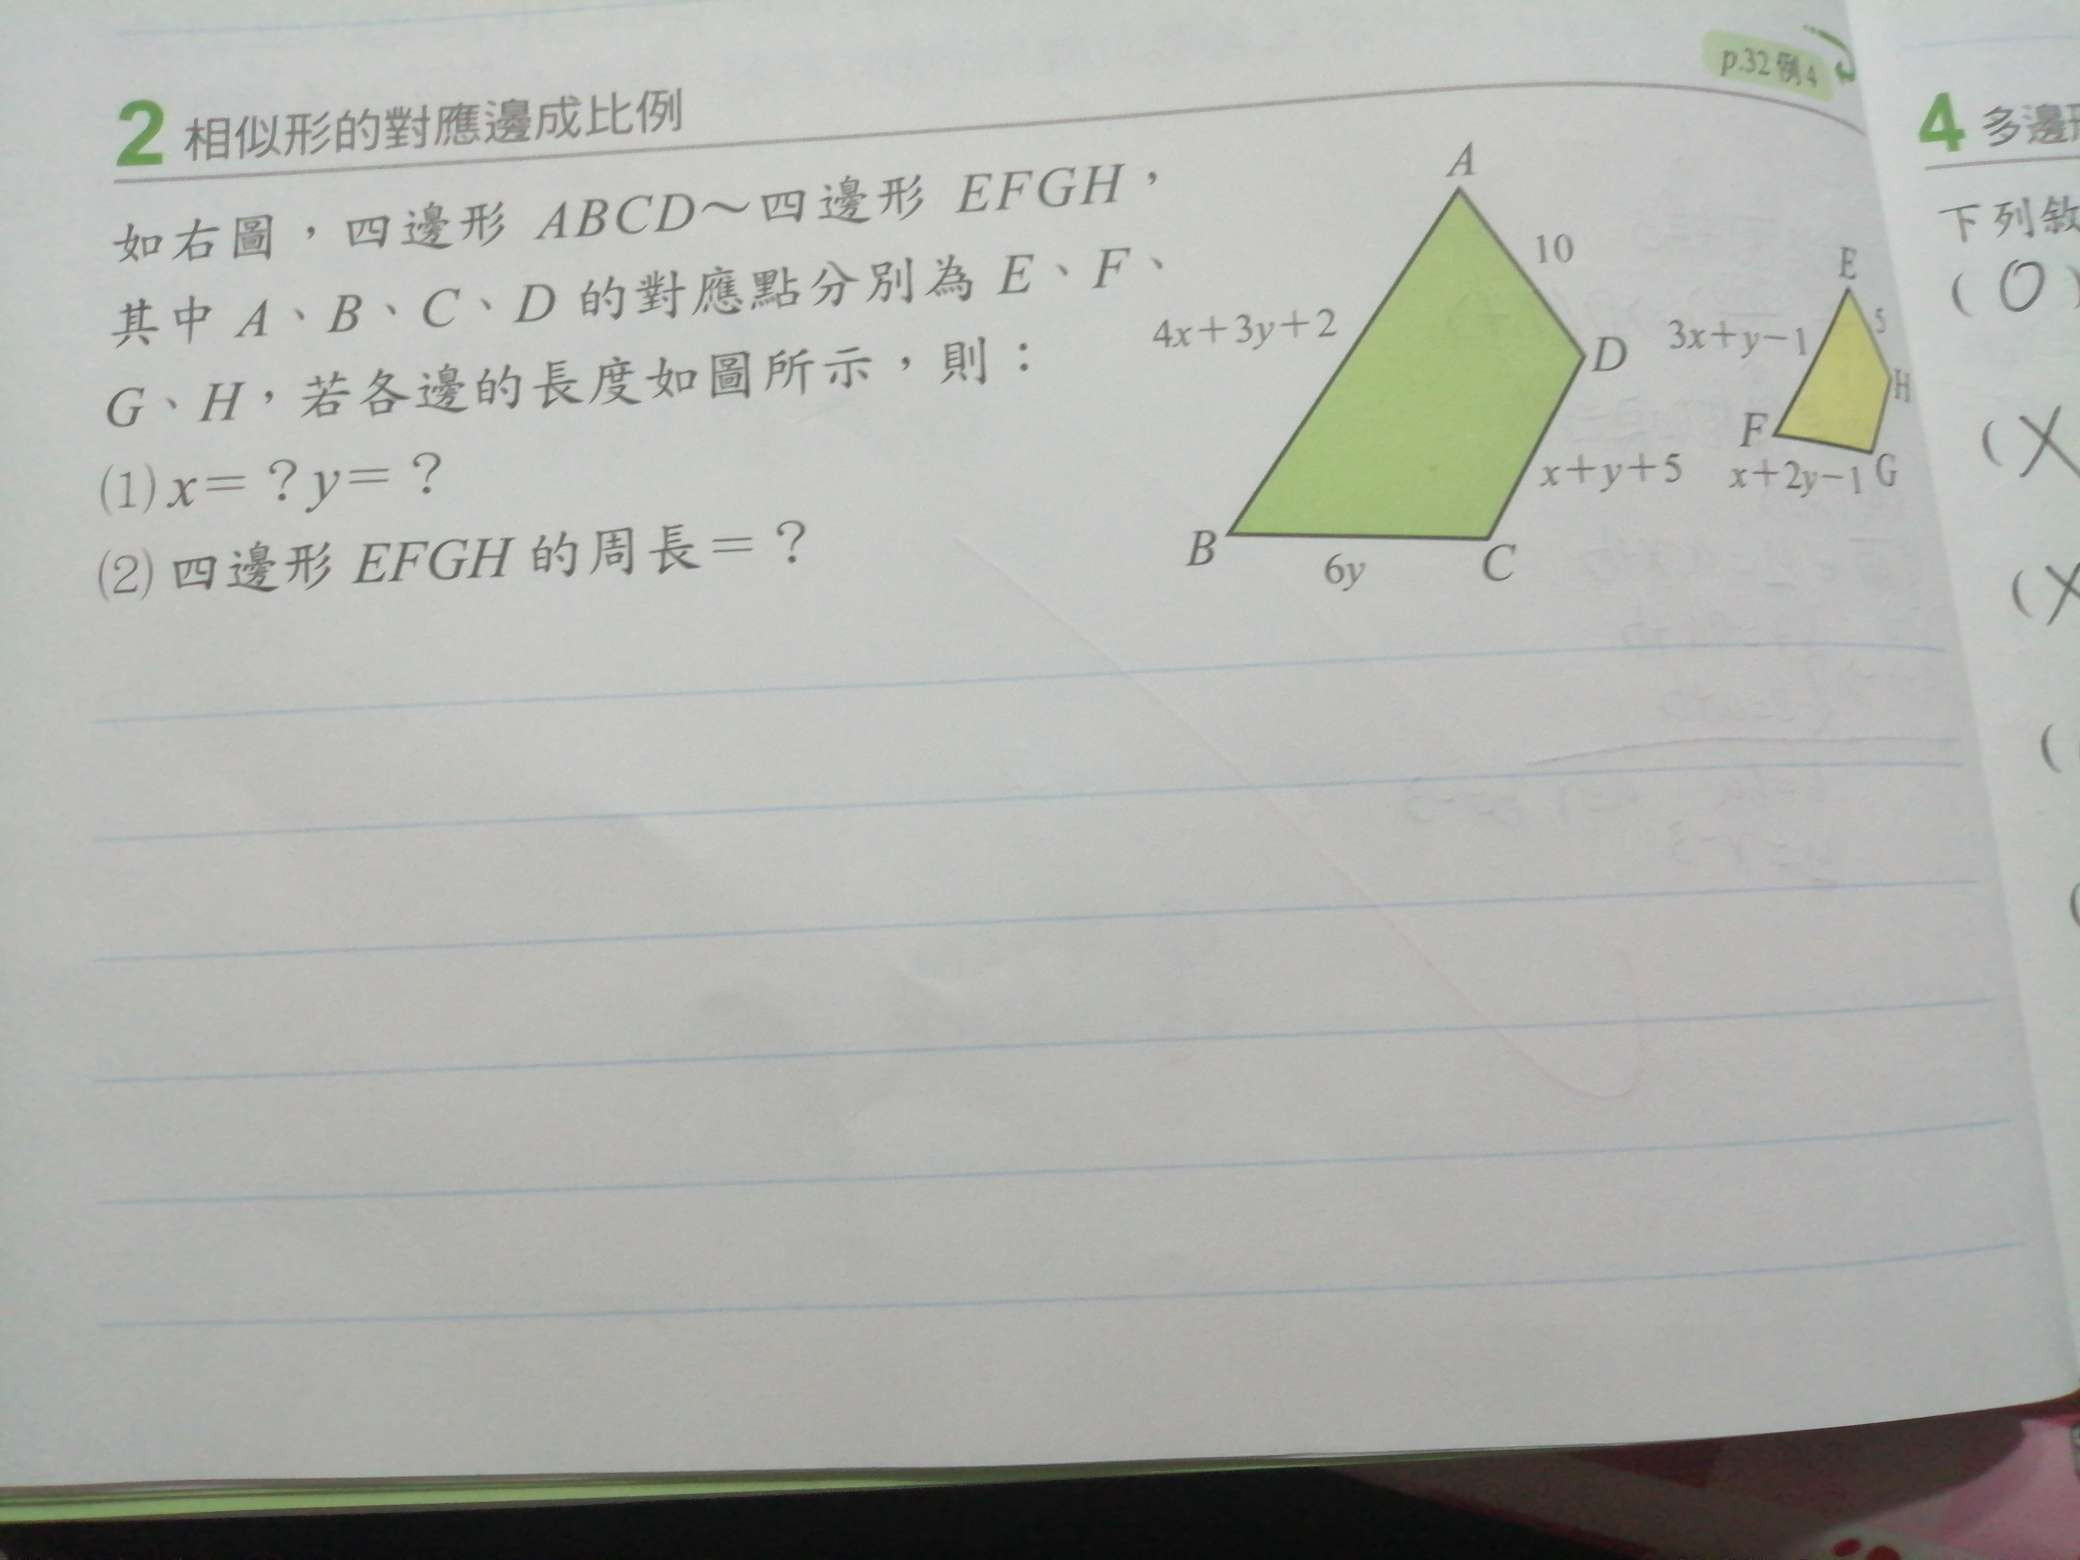 p.32例4
2 相似形的對應邊成比例
如右圖，四邊形 ABCD～四邊形 EFGH，
其中 A、B、C、D 的對應點分別為 E、F、
G、H，若各邊的長度如圖所示，則：
(1) x=？y=？
(2) 四邊形 EFGH 的周長=？
A
10
4x+3y+2
D
x+y+5
B
6y
C
E
5
3x+y−1
H
F
x+2y−1
G
4 多邊
下列敘
( O )
( X
( X
(
(